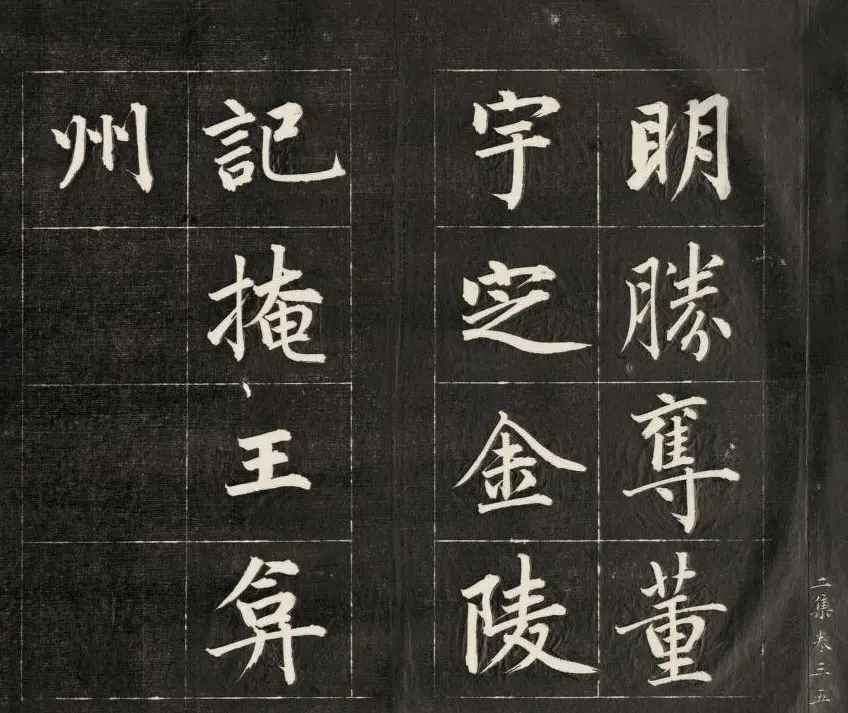 明勝奪董
宇定金陵
記掩王弇
州
二集卷三 五